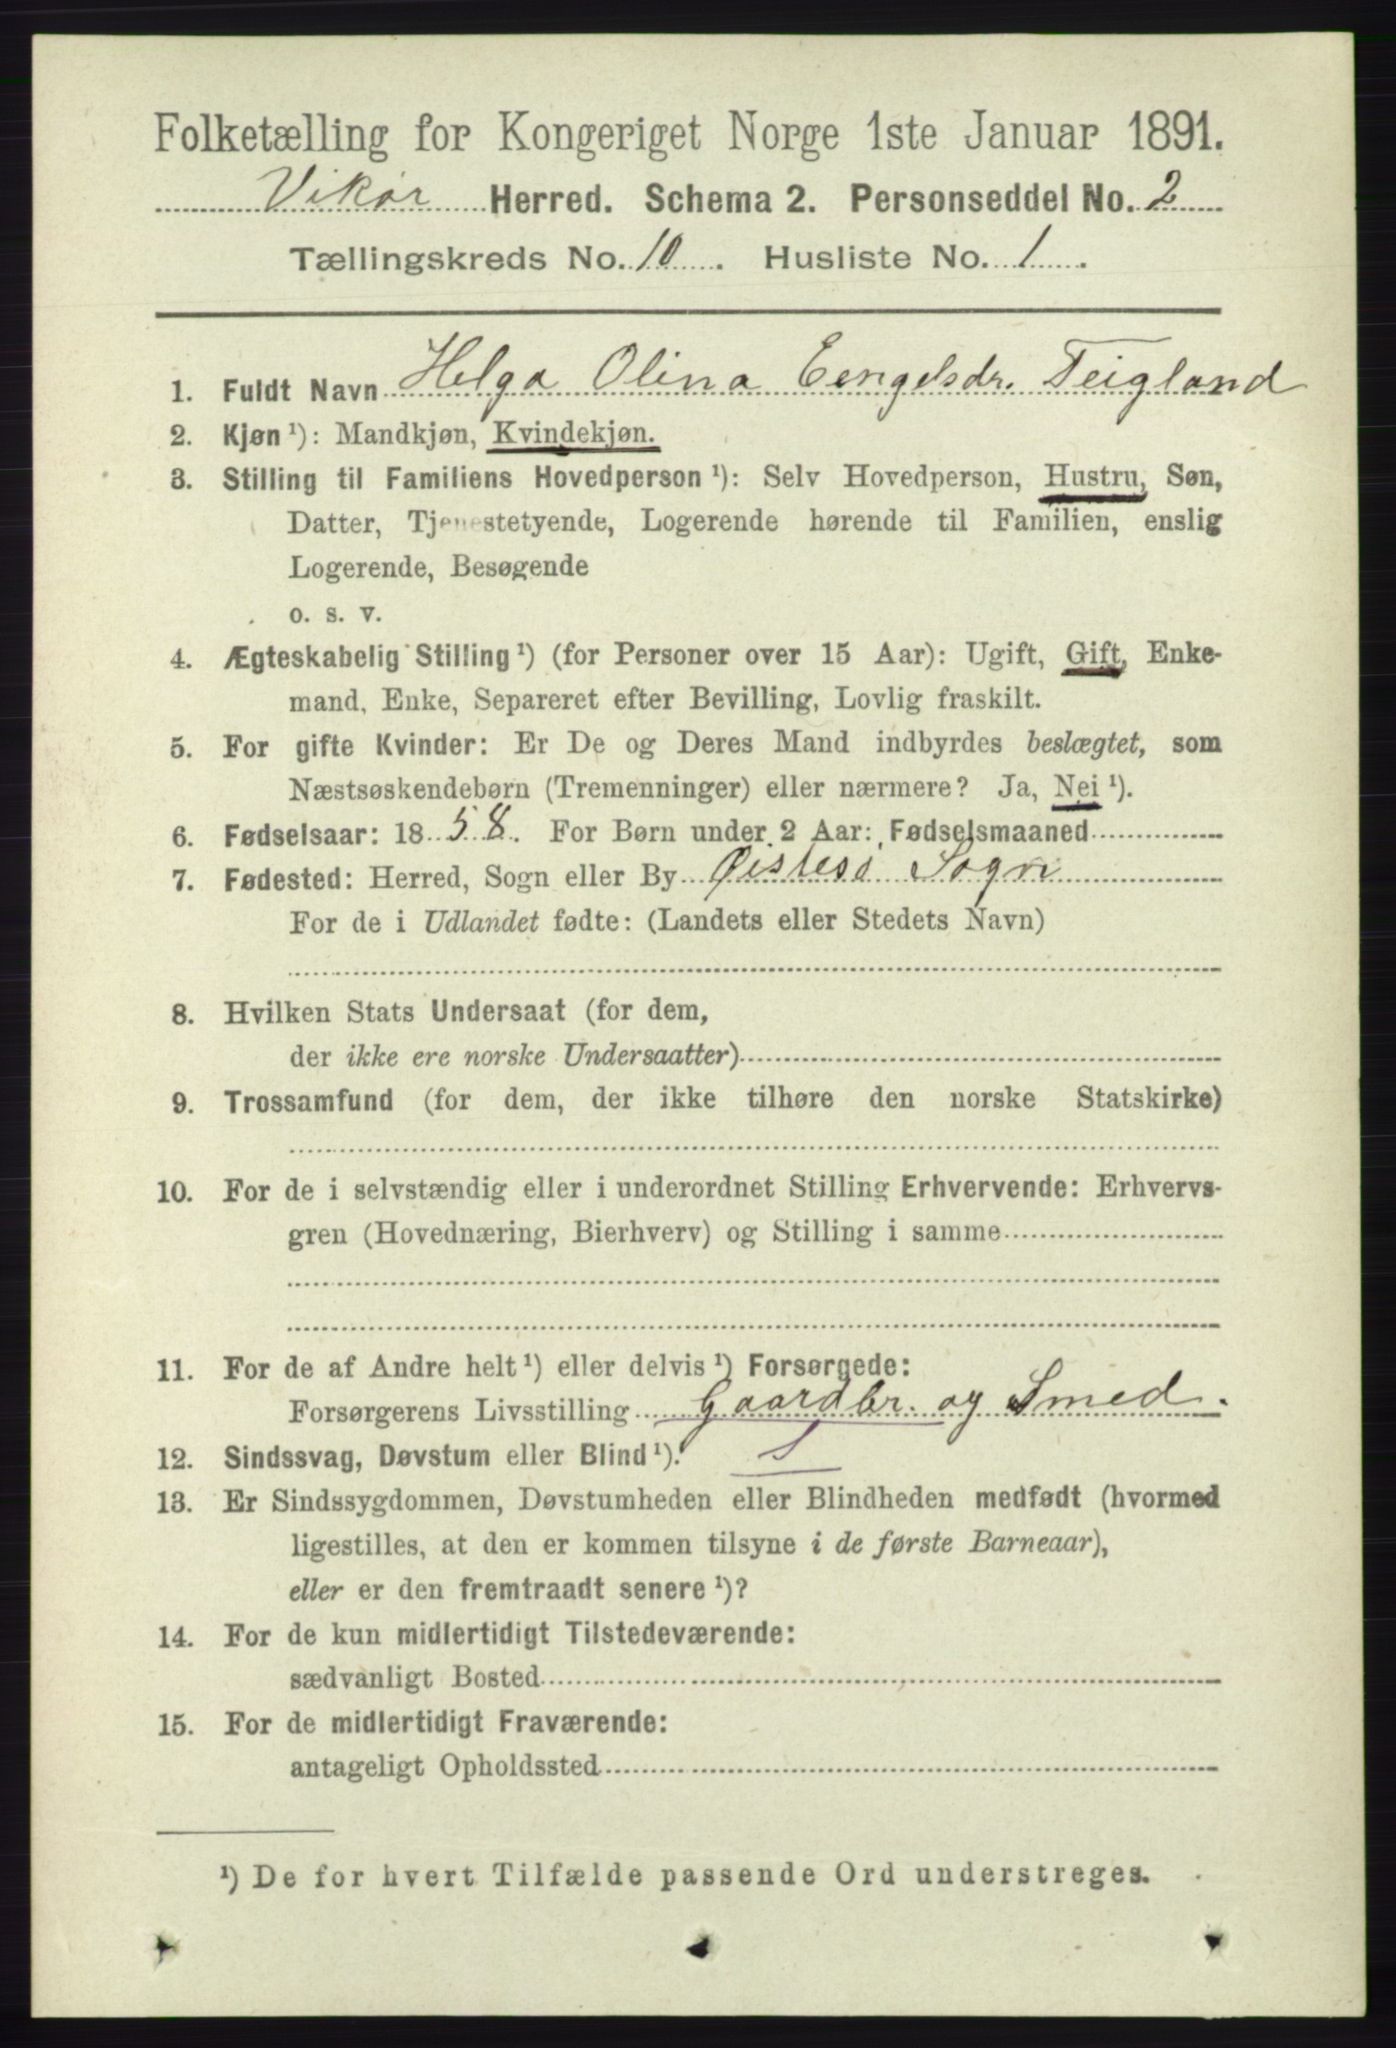 Folketælling for Kongeriget Norge 1ste Januar 1891.
Vikør Herred. Schema 2. Personseddel No. 2
Tællingskreds No. 10. Husliste No. 1.
1. Fuldt Navn Helga Olina Eengelsdr. Teigland
2. Kjøn ¹): Mandkjøn, Kvindekjøn.
3. Stilling til Familiens Hovedperson ¹): Selv Hovedperson, Hustru, Søn,
Datter, Tjenestetyende, Logerende hørende til Familien, enslig
Logerende, Besøgende
o. s. v.
4. Ægteskabelig Stilling ¹) (for Personer over 15 Aar): Ugift, Gift, Enke-
mand, Enke, Separeret efter Bevilling, Lovlig fraskilt.
5. For gifte Kvinder: Er De og Deres Mand indbyrdes beslægtet, som
Næstsøskendebørn (Tremenninger) eller nærmere? Ja, Nei ¹).
6. Fødselsaar: 1858. For Børn under 2 Aar: Fødselsmaaned
7. Fødested: Herred, Sogn eller By Østesø Sogn
For de i Udlandet fødte: (Landets eller Stedets Navn)
8. Hvilken Stats Undersaat (for dem,
der ikke ere norske Undersaatter)
9. Trossamfund (for dem, der ikke tilhøre den norske Statskirke)
10. For de i selvstændig eller i underordnet Stilling Erhvervende: Erhvervs-
gren (Hovednæring, Bierhverv) og Stilling i samme
11. For de af Andre helt ¹) eller delvis ¹) Forsørgede:
Forsørgerens Livsstilling Gaardbr. og Smed.
12. Sindssvag, Døvstum eller Blind ¹).
13. Er Sindssygdommen, Døvstumheden eller Blindheden medfødt (hvormed
ligestilles, at den er kommen tilsyne i de første Barneaar),
eller er den fremtraadt senere ¹)?
14. For de kun midlertidigt Tilstedeværende:
sædvanligt Bosted
15. For de midlertidigt Fraværende:
antageligt Opholdssted
¹) De for hvert Tilfælde passende Ord understreges.